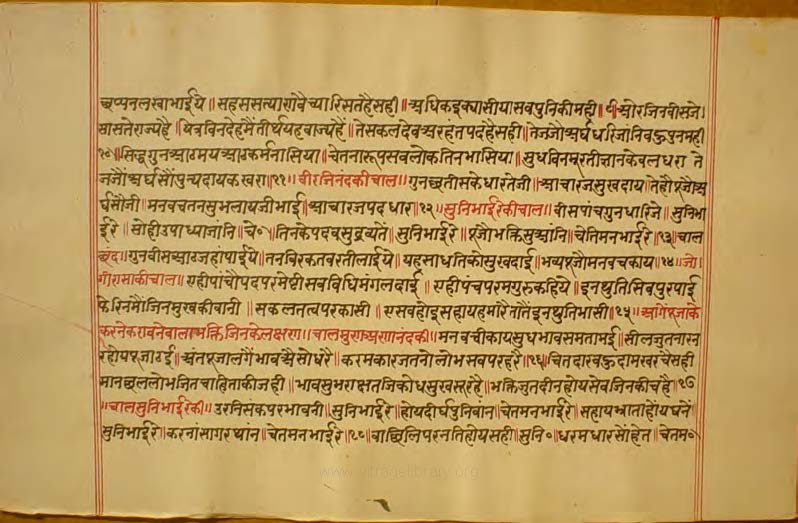 छप्पनलखाभाईये ॥ सहससत्याणौवैच्यारिसतहैसही ॥ अधिकइक्यासीयासवपुनिकीमही ॥ ९ ॥ औरजिनवीसजे
सासतेराज्यहै ॥ षेत्रविनदेहमैतीर्थयहवाज्यहैं ॥ तेसकलदेवअरहंतपदहैसही ॥ तेजजौंअर्घधरिजोनिवकुपुनमही
१० ॥ सिद्धगुनआठमयआठकर्मनासिया ॥ चेतनारूपसवलोकतिनभासिया ॥ सुधविनमूरतीज्ञानकेवलधरा ते
जजौंअर्घसौंपुन्यदायकखरा ॥ ११ ॥ वीरजिनंदकीचाल ॥ गुनछत्तीसकेधारतेजी ॥ आचारजसुखदाय ॥ तेहौंपूजौंअ
र्घसौजी ॥ मनवचतनसुभलायजीभाई ॥ आचारजपदधारा ॥ १२ ॥ सुनिभाईरेकीचाल ॥ वीसपांचगुनधारिजे ॥ सुनिभा
ईरे ॥ सोहीउपाध्याजांनि ॥ चे० ॥ तिनकेपदवसुद्रव्यते ॥ सुनिभाईरे ॥ पूजौंभक्तिसुआंनि ॥ चेतिमनभाईरे ॥ १३ ॥ चाल
छंद ॥ गुनवीसआठजहांपाईये ॥ तनविरकतवरतीलाईये ॥ यहसाधतिकोसुखदाई ॥ भव्यपूजौमनवचकाय ॥ १४ ॥ जो
गीरासाकीचाल ॥ एहीपांचौपदपरमेष्टीसवविधिमंगलदाई ॥ एहीपंचपरमगुरुकहिये ॥ इनथुतिसिवपुरपाई
फिरिनमौजिनमुखकीवानी ॥ सकलतत्वपरकासी ॥ एसवहोइसहायहमारैतातैंइनथुतिभासी ॥ १५ ॥ आगैंपूजाके
करनेकरावनेवालाभक्तिजिनकेलक्षण ॥ चालमुणअणांनंदकी ॥ मनवचीकायसुधभावसमतामई ॥ सीलजुतनारन
रहोयपूजाठई ॥ अंतपूजालगैंभावऔसोधरै ॥ करमकारजतनोलोभसवपरहरै ॥ १६ ॥ चितदारवकुदामखरचैसही
मानछललोभनितचाहिताकीजही ॥ भावसुभराक्षतजिकोधसुखसरहै ॥ भक्तिजुतदीनहोयसेवजिनकीचहै ॥ १७
॥ चालसुनिभाईरेकी ॥ उरनिसंकपरभावनी ॥ सुनिभाईरे ॥ होयदीर्घपुनिवान ॥ चेतमनभाईरे ॥ सहायभ्राताहोंयघनें
सुनिभाईरे ॥ करनांसागरथांन ॥ चेतमनभाईरे ॥ १८ ॥ वाछिलिपरनतिहोयसही ॥ सुनि० ॥ धरमधारसोंहेत ॥ चेतम०
www.vitragelibrary.org